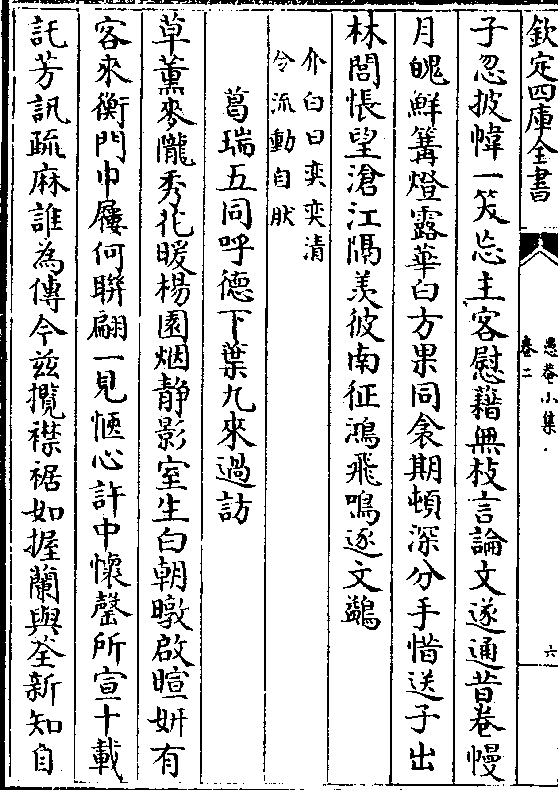 欽定四庫全書
愚菴小集
卷二
六
子忽披幃一笑忘主客慰藉無枝言論文遂通昔卷幔
月魄鮮篝燈露華白方果同衾期頓深分手惜送子出
林閭悵望滄江隔羡彼南征鴻飛鳴逐文鷁
介白曰奕奕清
令流動自肰
葛瑞五同呼德下葉九來過訪
草薰麥隴秀花暖楊園烟静影室生白朝暾啟暄妍有
客來衡門巾屨何聨翩一見愜心許中懷罄所宣十載
託芳訊疏麻誰為傳今兹攬襟裾如握蘭與荃新知自